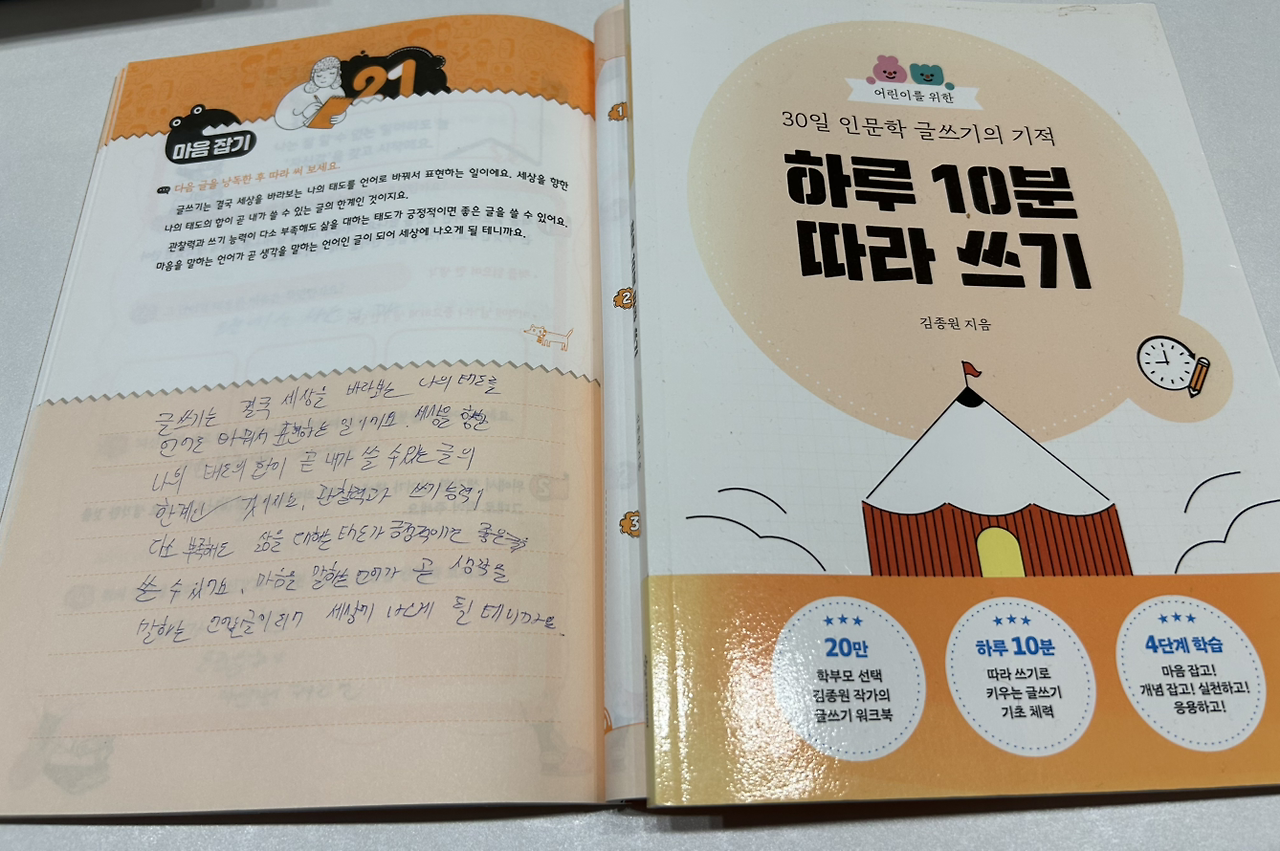 21
마음 잡기
다음 글을 낭독한 후 따라 써 보세요.
글쓰기는 결국 세상을 바라보는 나의 태도를 언어로 바꿔서 표현하는 일이에요. 세상을 향한
나의 태도의 합이 곧 내가 쓸 수 있는 글의 한계인 것이지요.
관찰력과 쓰기 능력이 다소 부족해도 삶을 대하는 태도가 긍정적이면 좋은 글을 쓸 수 있어요.
마음을 말하는 언어가 곧 생각을 말하는 언어인 글이 되어 세상에 나오게 될 테니까요.
글쓰기는 결국 세상을 바라보는 나의 태도를
언어로 바꿔서 표현하는 일이기요. 세상을 향한
나의 태도의 합이 곧 내가 쓸 수 있는 글의
한계인 것이지요. 관찰력과 쓰기 능력이
다소 부족해도 삶을 대하는 태도가 긍정적이면 좋은
쓸 수 있어요. 마음을 말하는 언어가 곧 생각을
말하는 세상에 나오게 될 테니까요.
1
2
3
어린이를 위한
30일 인문학 글쓰기의 기적
하루 10분
따라 쓰기
김종원 지음
20만
학부모 선택
김종원 작가의
글쓰기 워크북
하루 10분
따라 쓰기로
키우는 글쓰기
기초 체력
4단계 학습
마음 잡고!
개념 잡고! 실천하고!
응용하고!